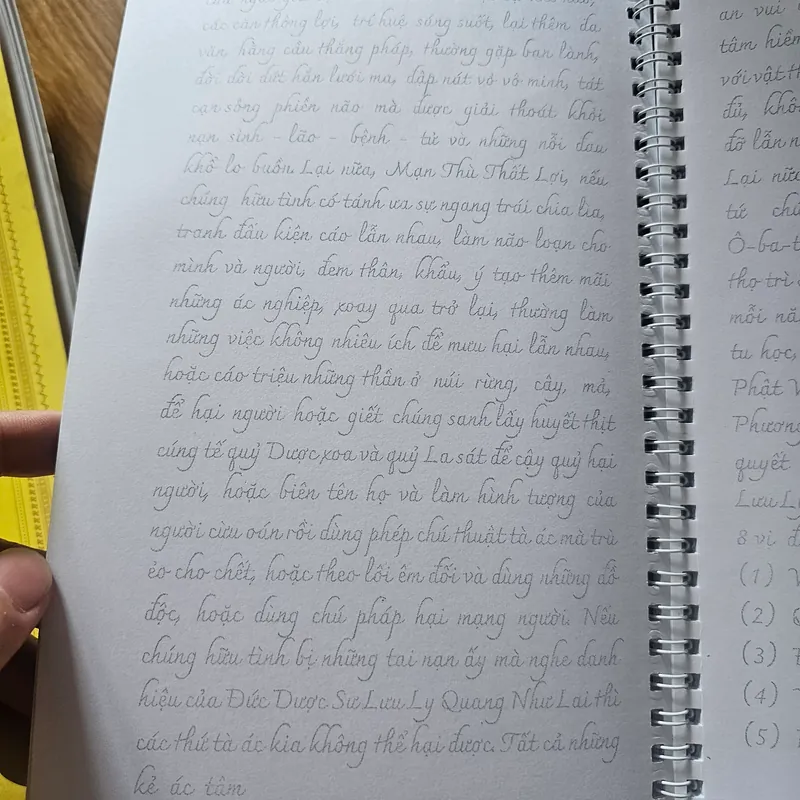 các căn thông lợi, trí huệ sáng suốt, lại thêm đa
văn, hằng cầu thắng pháp, thường gặp bạn lành,
đời đời dứt hẳn lưới ma, đập nát vỏ vô minh, tát
cạn sông phiền não mà được giải thoát khỏi
nạn sinh - lão - bệnh - tử và những nỗi đau
khổ lo buồn. Lại nữa, Mạn Thù Thất Lợi, nếu
chúng hữu tình có tánh ưa sự ngang trái chia lìa,
tranh đấu kiện cáo lẫn nhau, làm não loạn cho
mình và người, đem thân, khẩu, ý tạo thêm mãi
những ác nghiệp, xoay qua trở lại, thường làm
những việc không nhiêu ích để mưu hại lẫn nhau,
hoặc cáo triệu những thần ở núi rừng, cây, mả,
để hại người hoặc giết chúng sanh lấy huyết thịt
cúng tế quỷ Dược xoa và quỷ La sát để cậy quỷ hại
người, hoặc biên tên họ và làm hình tượng của
người cừu oán rồi dùng phép chú thuật tà ác mà trù
ẻo cho chết, hoặc theo lối ếm đối và dùng những đồ
độc, hoặc dùng chú pháp hại mạng người. Nếu
chúng hữu tình bị những tai nạn ấy mà nghe danh
hiệu của Đức Dược Sư Lưu Ly Quang Như Lai thì
các thứ tà ác kia không thể hại được. Tất cả những
kẻ ác tâm
an vui
tâm hiền
với vật
đủ, khô
đỡ lẫn n
Lại nữa
tứ chú
Ô-ba-t
thọ trì
mỗi nă
tu học,
Phật V
Phương
quyết
Lưu Ly
8 vị
(1) V
(2)
(3)
(4)
(5)